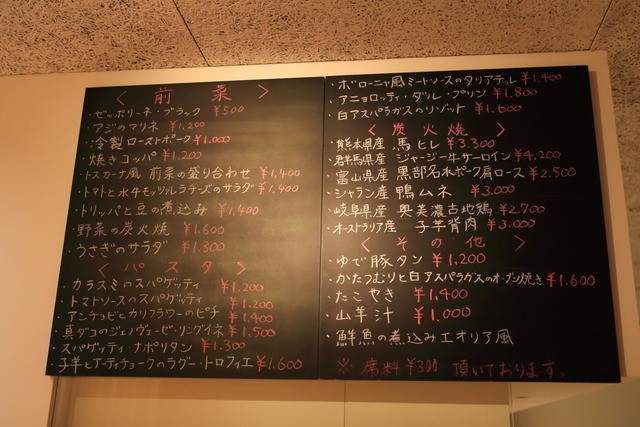 〈 前菜 〉
・ゼッポリーネ・ブラック ¥500
・アジのマリネ ¥1,200
・冷製ローストポーク ¥1,000
・焼きコッパ ¥1,200
・トスカーナ風 前菜の盛り合わせ ¥1,400
・トマトと水牛モッツァレラチーズのサラダ ¥1,400
・トリッパと豆の煮込み ¥1,400
・野菜の炭火焼 ¥1,600
・うさぎのサラダ ¥1,300
〈 パスタ 〉
・カラスミのスパゲッティ ¥1,200
・トマトソースのスパゲッティ ¥1,200
・アンチョビとカリフラワーのピチ ¥1,400
・真ダコのジェノヴェーゼ・リングイネ ¥1,500
・スパゲッティ・ナポリタン ¥1,300
・子羊とアーティチョークのラグー・トロフィエ ¥1,600
・ボローニャ風ミートソースのタリアテッレ ¥1,400
・アニョロッティ・ダル・プリン ¥1,800
・白アスパラガスのリゾット ¥1,600
〈 炭火焼 〉
・熊本県産 馬ヒレ ¥3,300
・群馬県産 ジャージー牛サーロイン ¥4,200
・富山県産 黒部名水ポーク肩ロース ¥2,500
・シャラン産 鴨ムネ ¥3,000
・岐阜県産 奥美濃古地鶏 ¥2700
・オーストラリア産 子羊背肉 ¥3,000
〈 その他 〉
・ゆで豚タン ¥1,200
・かたつむりと白アスパラガスのオーブン焼き ¥1,600
・たこやき ¥1,400
・山羊汁 ¥1,000
・鮮魚の煮込みエオリア風
※ 席料¥300 頂いております。